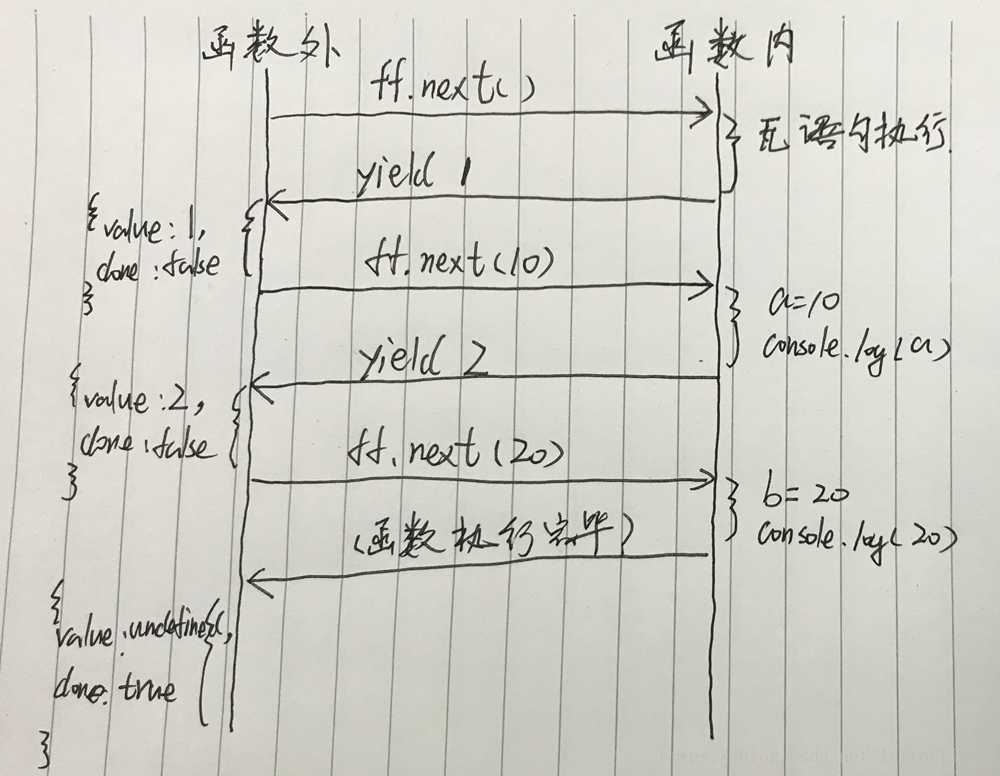 函数外
函数内
ff.next()
无语句执行
yield 1
{
value: 1,
done: false
}
ff.next(10)
a=10
console.log(a)
yield 2
{
value: 2,
done: false
}
ff.next(20)
b=20
console.log(20)
(函数执行完毕)
{
value: undefined,
done: true
}